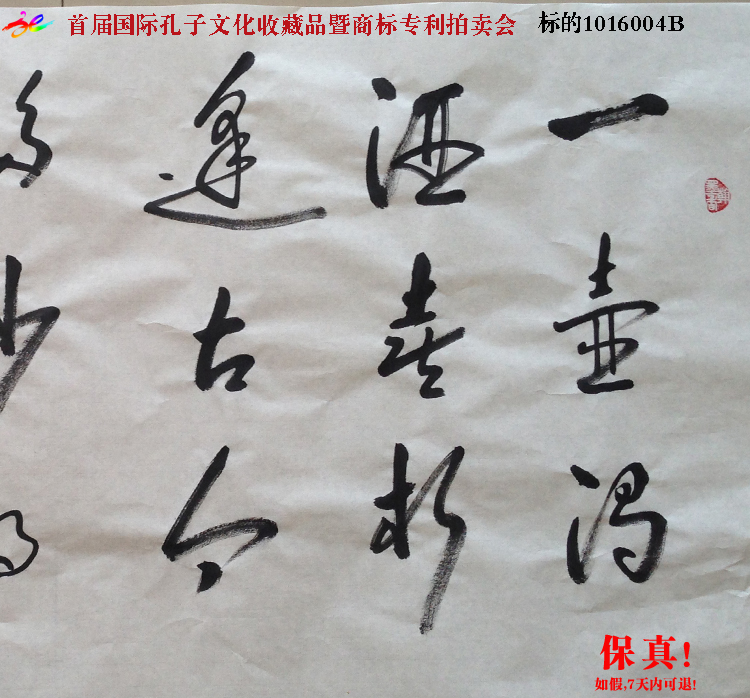 首届国际孔子文化收藏品暨商标专利拍卖会 标的1016004B
一壶濁
酒喜相
逢古今
多少
保真!
如假,7天内可退!